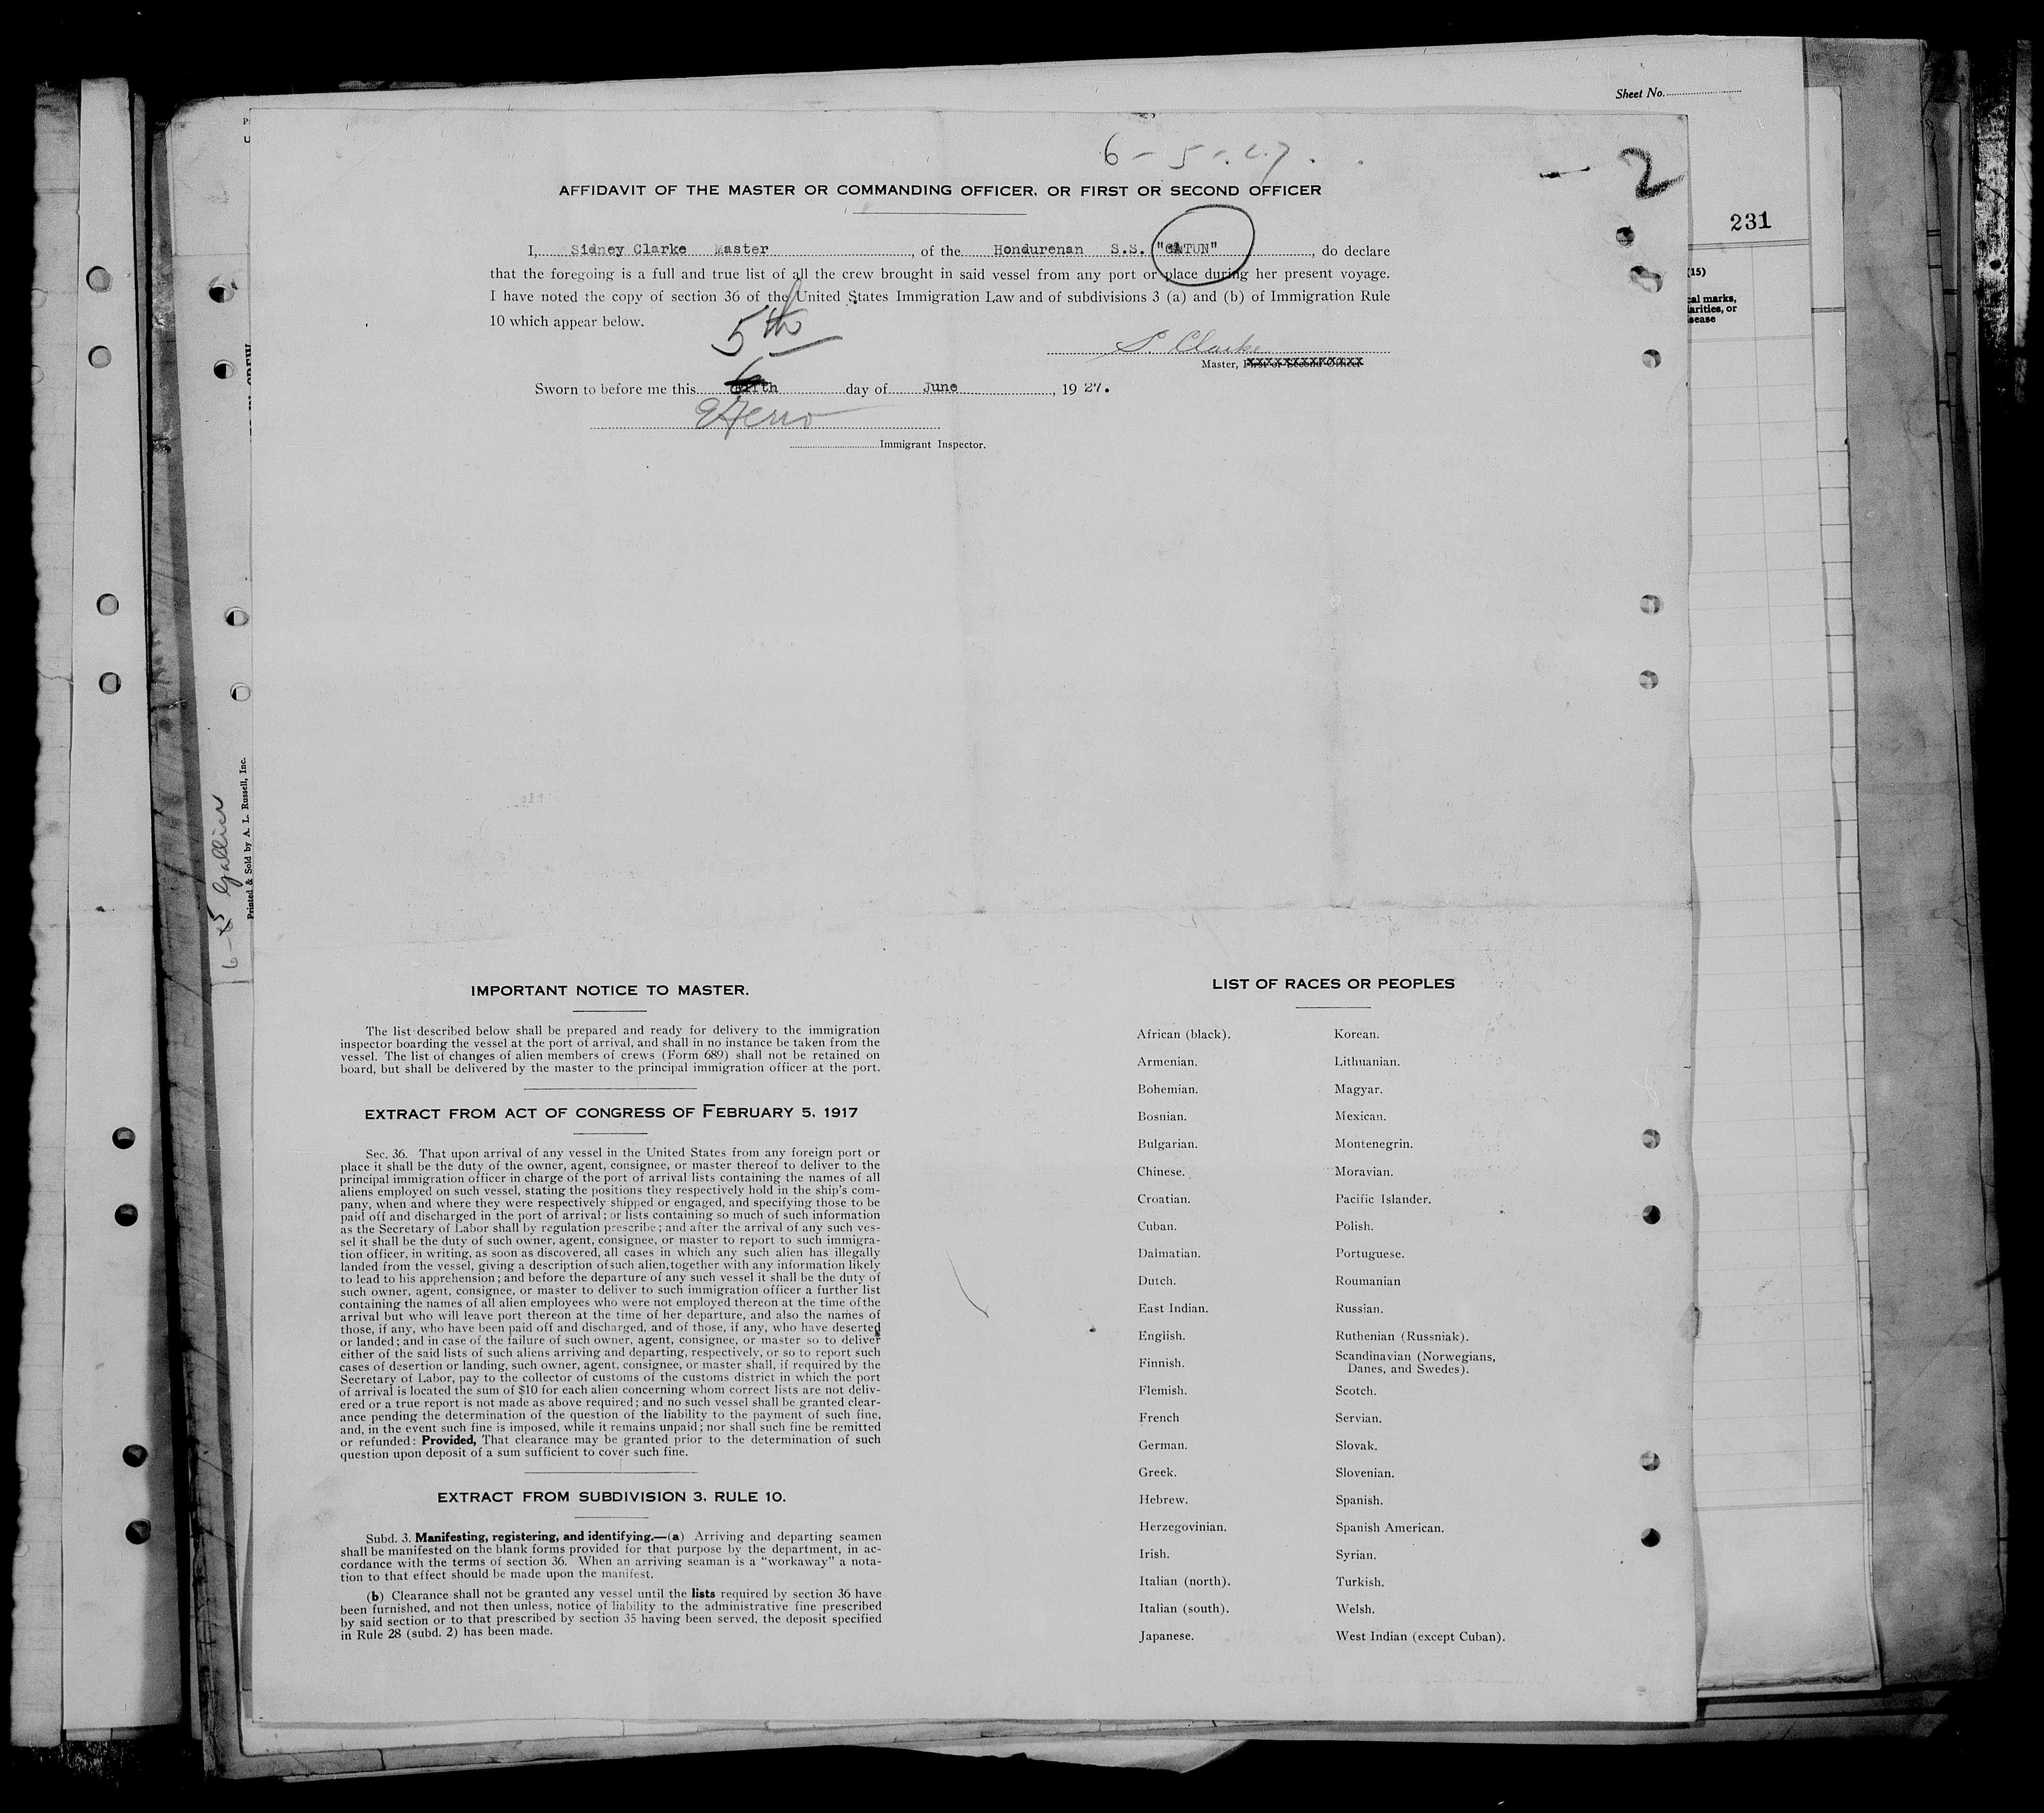 Sheet No.
6-5-27.
2
AFFIDAVIT OF THE MASTER OR COMMANDING OFFICER, OR FIRST OR SECOND OFFICER
231
I, Sidney Clarke Master, of the Hondurenan S.S. "GATUN", do declare
that the foregoing is a full and true list of all the crew brought in said vessel from any port or place during her present voyage.
I have noted the copy of section 36 of the United States Immigration Law and of subdivisions 3 (a) and (b) of Immigration Rule
10 which appear below.
(15)
cal marks,
larities, or
sease
5th
S Clarke
Master, First or Second Officer
Sworn to before me this day of June, 19 27.
Immigrant Inspector.
6-5 Gallier
Printed & Sold by A. L. Russell, Inc.
IMPORTANT NOTICE TO MASTER.
The list described below shall be prepared and ready for delivery to the immigration
inspector boarding the vessel at the port of arrival, and shall in no instance be taken from the
vessel. The list of changes of alien members of crews (Form 689) shall not be retained on
board, but shall be delivered by the master to the principal immigration officer at the port.
EXTRACT FROM ACT OF CONGRESS OF FEBRUARY 5, 1917
Sec. 36. That upon arrival of any vessel in the United States from any foreign port or
place it shall be the duty of the owner, agent, consignee, or master thereof to deliver to the
principal immigration officer in charge of the port of arrival lists containing the names of all
aliens employed on such vessel, stating the positions they respectively hold in the ship's com-
pany, when and where they were respectively shipped or engaged, and specifying those to be
paid off and discharged in the port of arrival; or lists containing so much of such information
as the Secretary of Labor shall by regulation prescribe; and after the arrival of any such ves-
sel it shall be the duty of such owner, agent, consignee, or master to report to such immigra-
tion officer, in writing, as soon as discovered, all cases in which any such alien has illegally
landed from the vessel, giving a description of such alien, together with any information likely
to lead to his apprehension; and before the departure of any such vessel it shall be the duty of
such owner, agent, consignee, or master to deliver to such immigration officer a further list
containing the names of all alien employees who were not employed thereon at the time of the
arrival but who will leave port thereon at the time of her departure, and also the names of
those, if any, who have been paid off and discharged, and of those, if any, who have deserted
or landed; and in case of the failure of such owner, agent, consignee, or master so to deliver
either of the said lists of such aliens arriving and departing, respectively, or so to report such
cases of desertion or landing, such owner, agent, consignee, or master shall, if required by the
Secretary of Labor, pay to the collector of customs of the customs district in which the port
of arrival is located the sum of $10 for each alien concerning whom correct lists are not deliv-
ered or a true report is not made as above required; and no such vessel shall be granted clear-
ance pending the determination of the question of the liability to the payment of such fine,
and, in the event such fine is imposed, while it remains unpaid; nor shall such fine be remitted
or refunded: Provided, That clearance may be granted prior to the determination of such
question upon deposit of a sum sufficient to cover such fine.
EXTRACT FROM SUBDIVISION 3, RULE 10.
Subd. 3. Manifesting, registering, and identifying.—(a) Arriving and departing seamen
shall be manifested on the blank forms provided for that purpose by the department, in ac-
cordance with the terms of section 36. When an arriving seaman is a "workaway" a nota-
tion to that effect should be made upon the manifest.
(b) Clearance shall not be granted any vessel until the lists required by section 36 have
been furnished, and not then unless, notice of liability to the administrative fine prescribed
by said section or to that prescribed by section 35 having been served, the deposit specified
in Rule 28 (subd. 2) has been made.
LIST OF RACES OR PEOPLES
African (black).
Armenian.
Bohemian.
Bosnian.
Bulgarian.
Chinese.
Croatian.
Cuban.
Dalmatian.
Dutch.
East Indian.
English.
Finnish.
Flemish.
French
German.
Greek.
Hebrew.
Herzegovinian.
Irish.
Italian (north).
Italian (south).
Japanese.
Korean.
Lithuanian.
Magyar.
Mexican.
Montenegrin.
Moravian.
Pacific Islander.
Polish.
Portuguese.
Roumanian
Russian.
Ruthenian (Russniak).
Scandinavian (Norwegians,
Danes, and Swedes).
Scotch.
Servian.
Slovak.
Slovenian.
Spanish.
Spanish American.
Syrian.
Turkish.
Welsh.
West Indian (except Cuban).